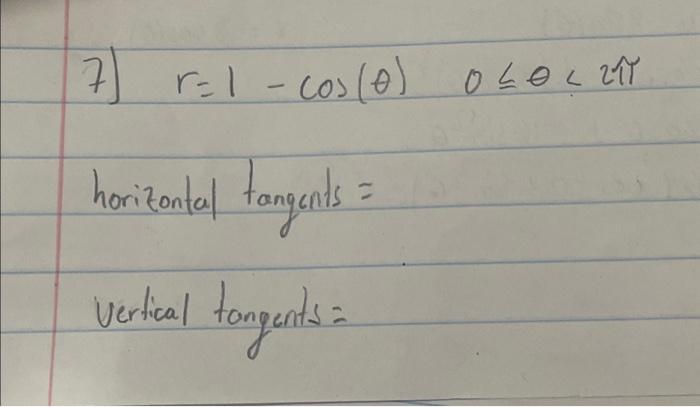 7] r=1 - cos(θ) 0 ≤ θ < 2π
horizontal tangents =
vertical tangents =